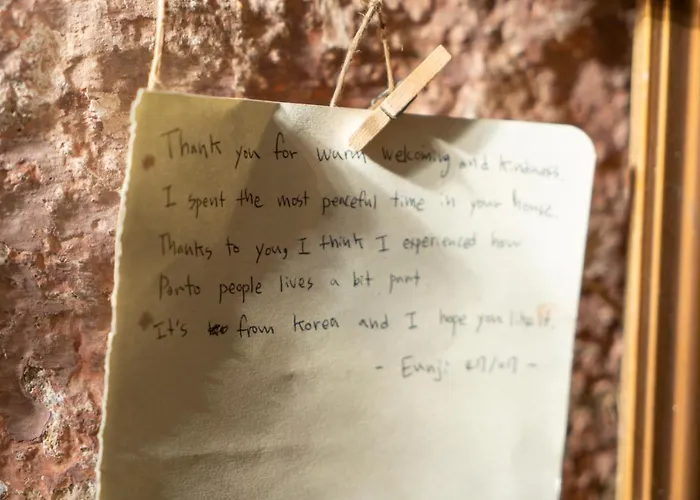 Thank you for warm welcoming and kindness
I spent the most peaceful time in your house.
Thanks to you, I think I experienced how
Porto people lives a bit part
It's from Korea and I hope you like it.
- Eunji -